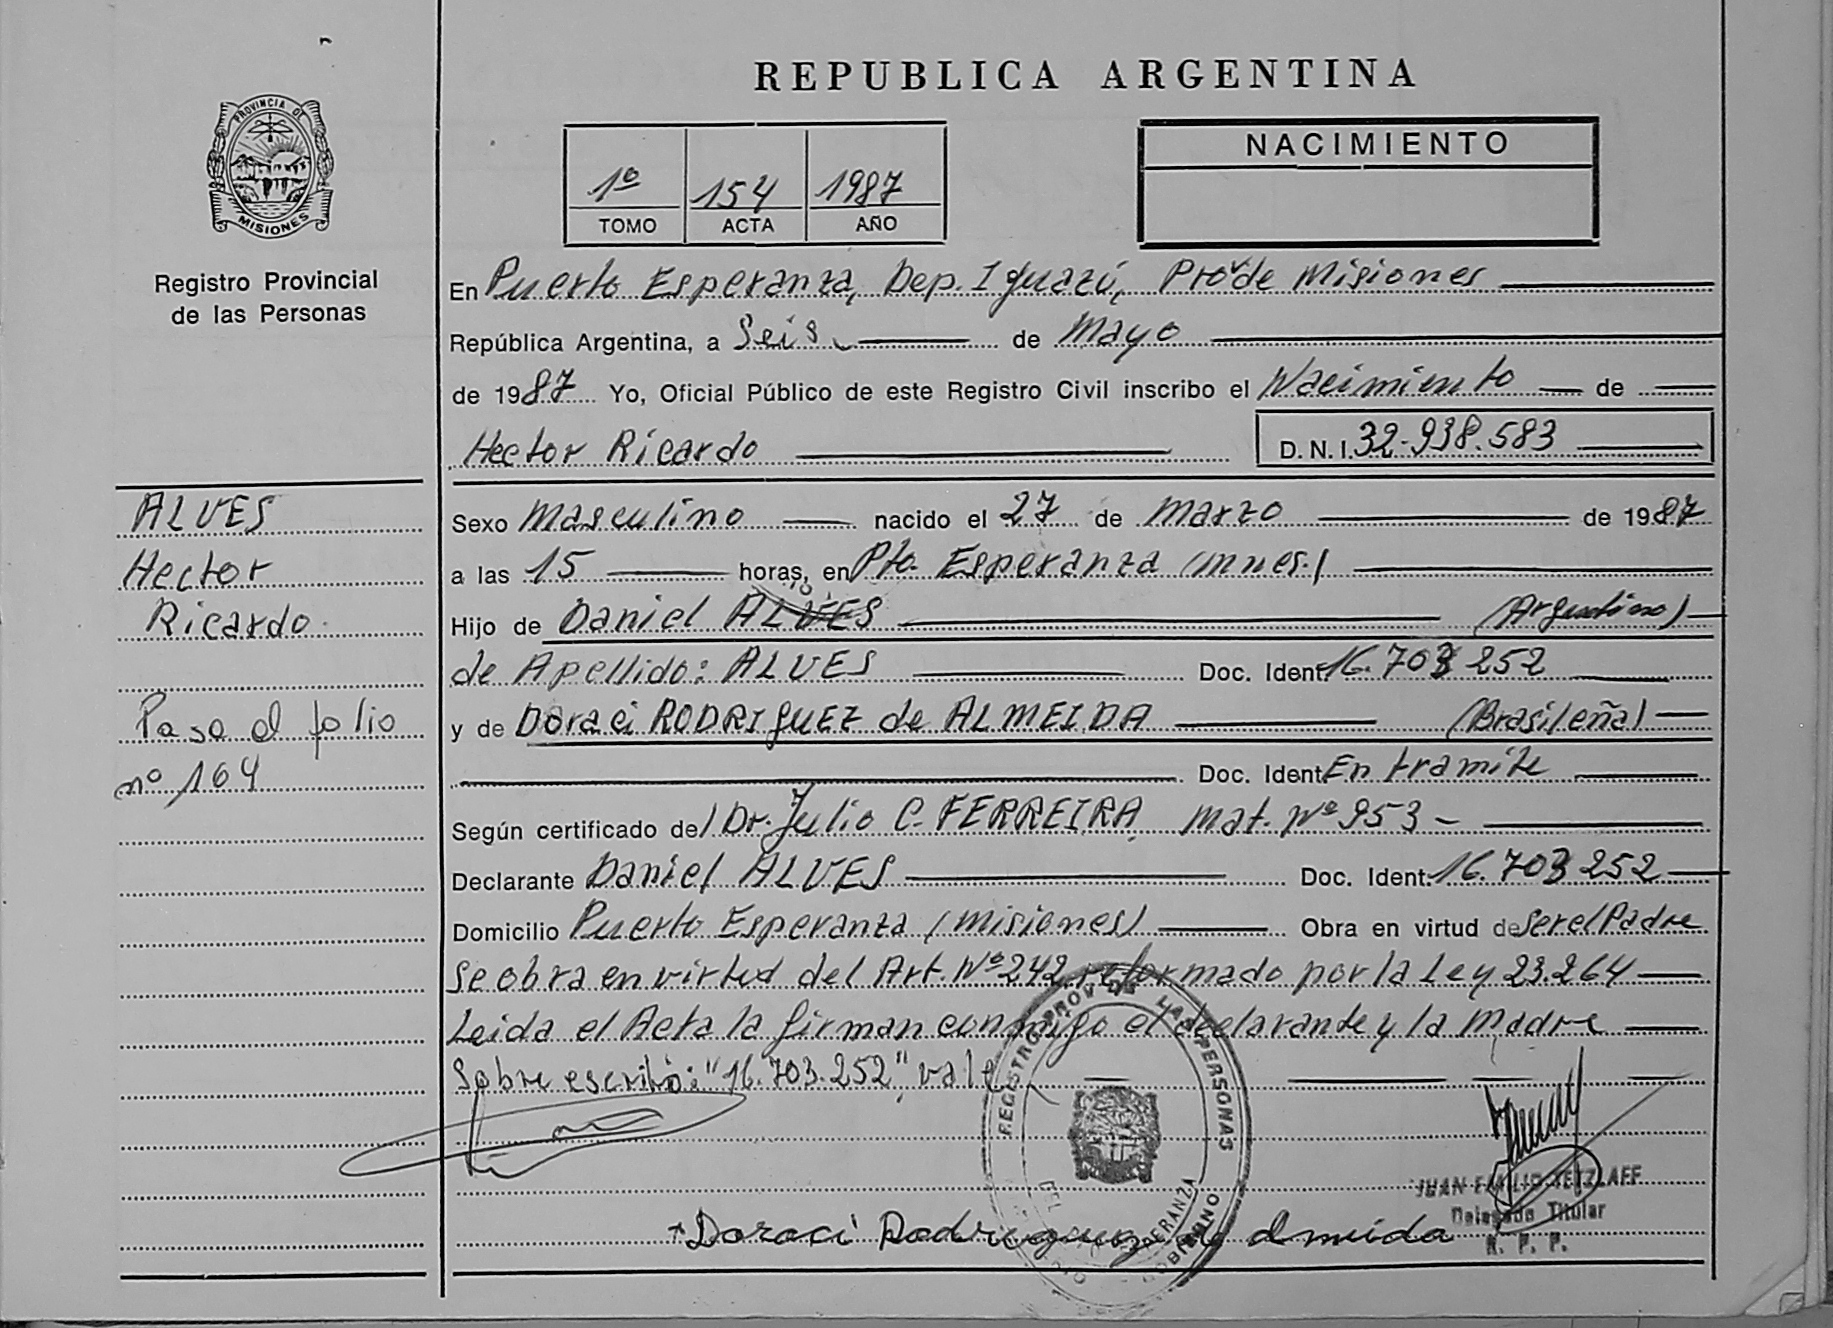 REPUBLICA ARGENTINA
PROVINCIA DE
MISIONES
Registro Provincial
de las Personas
1º 154 1987
TOMO ACTA AÑO
NACIMIENTO
En Puerto Esperanza, Dep. Iguazú, Prov de Misiones
República Argentina, a Seis de Mayo
de 1987 Yo, Oficial Público de este Registro Civil inscribo el Nacimiento de
Hector Ricardo D. N. I. 32.938.583
ALVES
Hector
Ricardo
Pasa al folio
nº 164
Sexo Masculino nacido el 27 de Marzo de 1987
a las 15 horas, en Pto. Esperanza (mnes.)
Hijo de Daniel ALVES (Argentino)
de Apellido: ALVES Doc. Ident. 16.703 252
y de Doraci RODRIGUEZ de ALMEIDA (Brasileña)
Doc. Ident. En tramite
Según certificado del Dr. Julio C. FERREIRA mat. Nº 953 -
Declarante Daniel ALVES Doc. Ident. 16.703 252
Domicilio Puerto Esperanza (Misiones) Obra en virtud de Ser el Padre
Se obra en virtud del Art. Nº 242 reformado por la Ley 23.264
Leida el Acta la firman conmigo el declarante y la Madre
Sobre escribió: "16.703.252" vale
REGISTRO PROV DE LAS PERSONAS
ESPERANZA
GOBIERNO
JUAN EMILIO TETZLAFF
Delegado Titular
R. P. P.
Doraci Rodriguez de Almeida